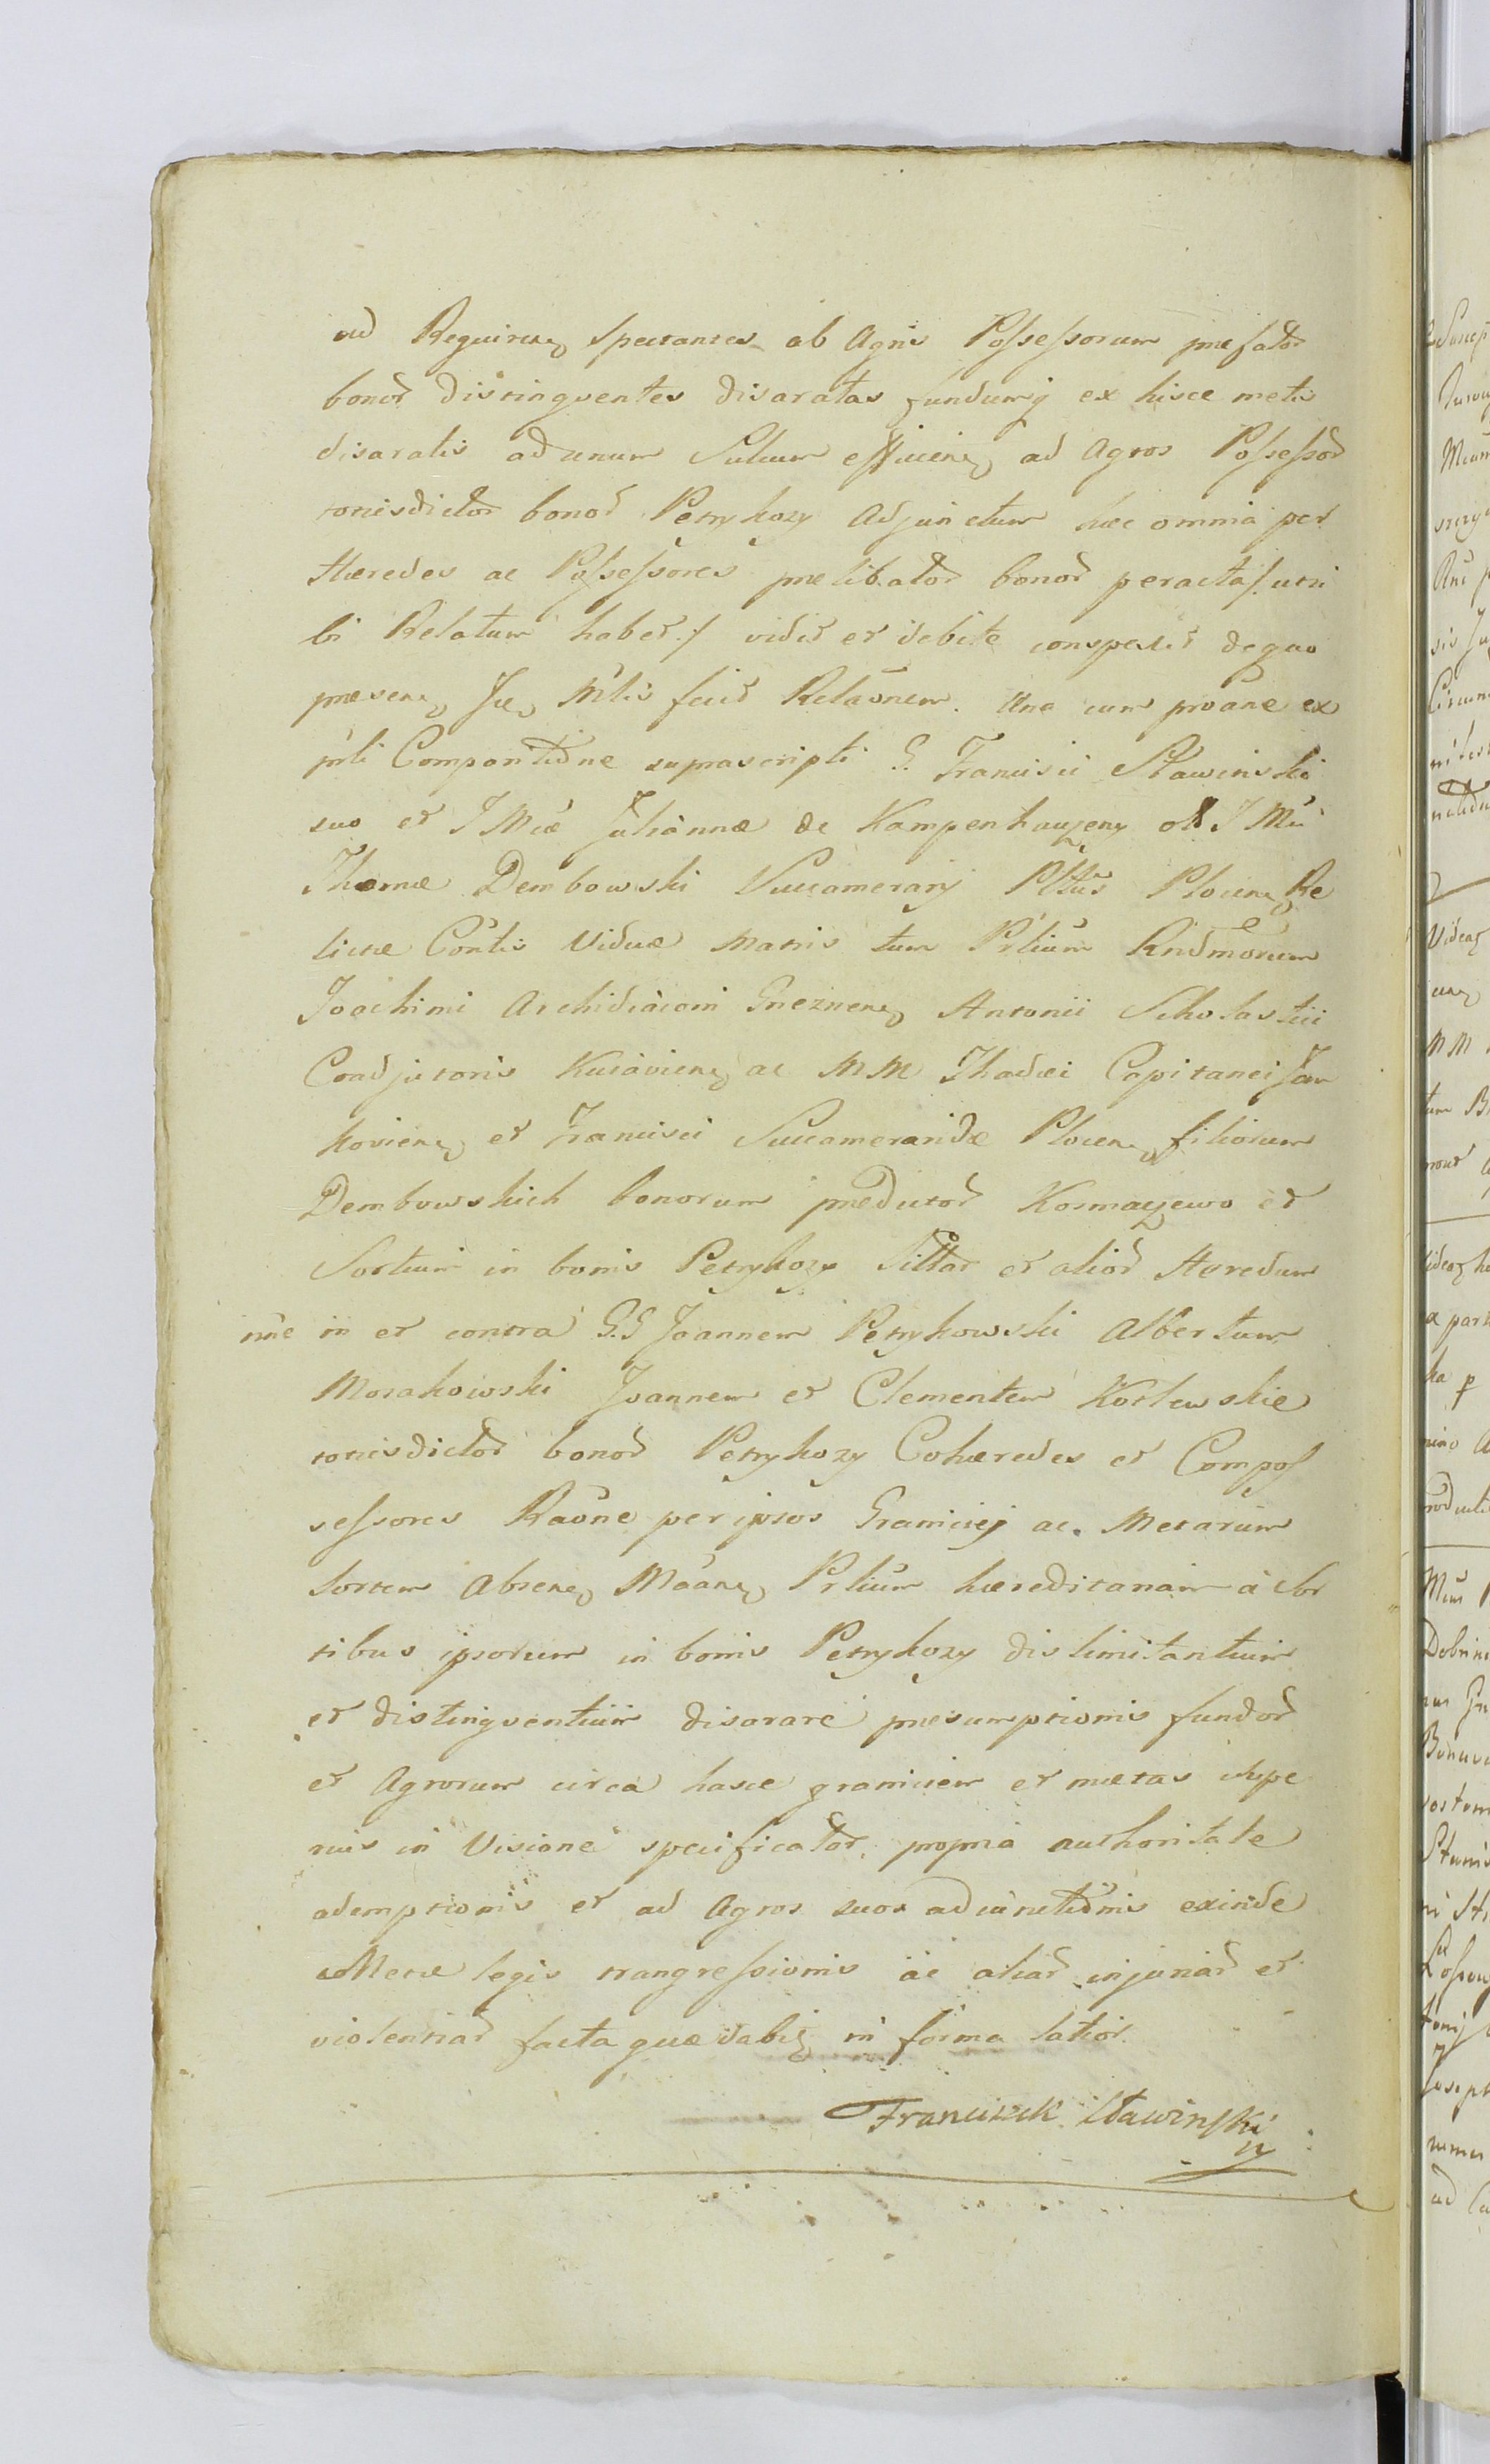 ad Requiren spectantes ab Agris Possessorum præfator
bonor distingventes disaratas fundumq ex hisce metis
disaratis ad unum Sulcum efficien ad Agros Possessor
toriesdictor bonor Petrykozy Adjunctum hæc omnia per
Hæredes ac Possessores prælibator bonor peracta /: uti si
bi Relatum habet :/ vidit et debite conspexit de quo
præsen Jud Mlis fecit Relãonem. Una cum proane ex
prti Comportidne suprascripti G. Francisci Sławinski
suo et J Mcæ Juliannæ de Kampenhauzeny olt J Mci
Thomæ Dembowski Succamerarij Pltus Plocen Re
lictæ Contis Viduæ Matris tum Prlium Rndmorum
Joachimi Archidiaconi Gneznen Antonii Scholastici
Coadjutoris Kujavien ac M M Thadæi Capitanei Jan
kovien et Francisci Succameraridæ Plocen filiorum
Dembowskich bonorum prædictor Kosmaczewo et
Sortium in bonis Petrykozy Sittar et alior Hæredum
nne in et contra G.G Joannem Petrykowski Albertum
Morakowski Joannem et Clementem Kozlewskie
toriesdictor bonor Petrykozy Cohæredes et Compos
sessores Raõne per ipsos Graniciej ac Metarum
Sortem Absen Mãan Prlium hæreditariam à Sor
tibus ipsorum in bonis Petrykozy dislimitantium
et distingventium disarare præsumptionis fundor
et Agrorum circa hasce graniciem et metas supe
rius in Visione specificator propria authoritate
ademptionis et ad Agros suos adiunctidnis exinde
Metæ legis trangressionis ac aliar injuriar et
violentiar facta quæ dabit in forma latior.
Franciszek Sławinski